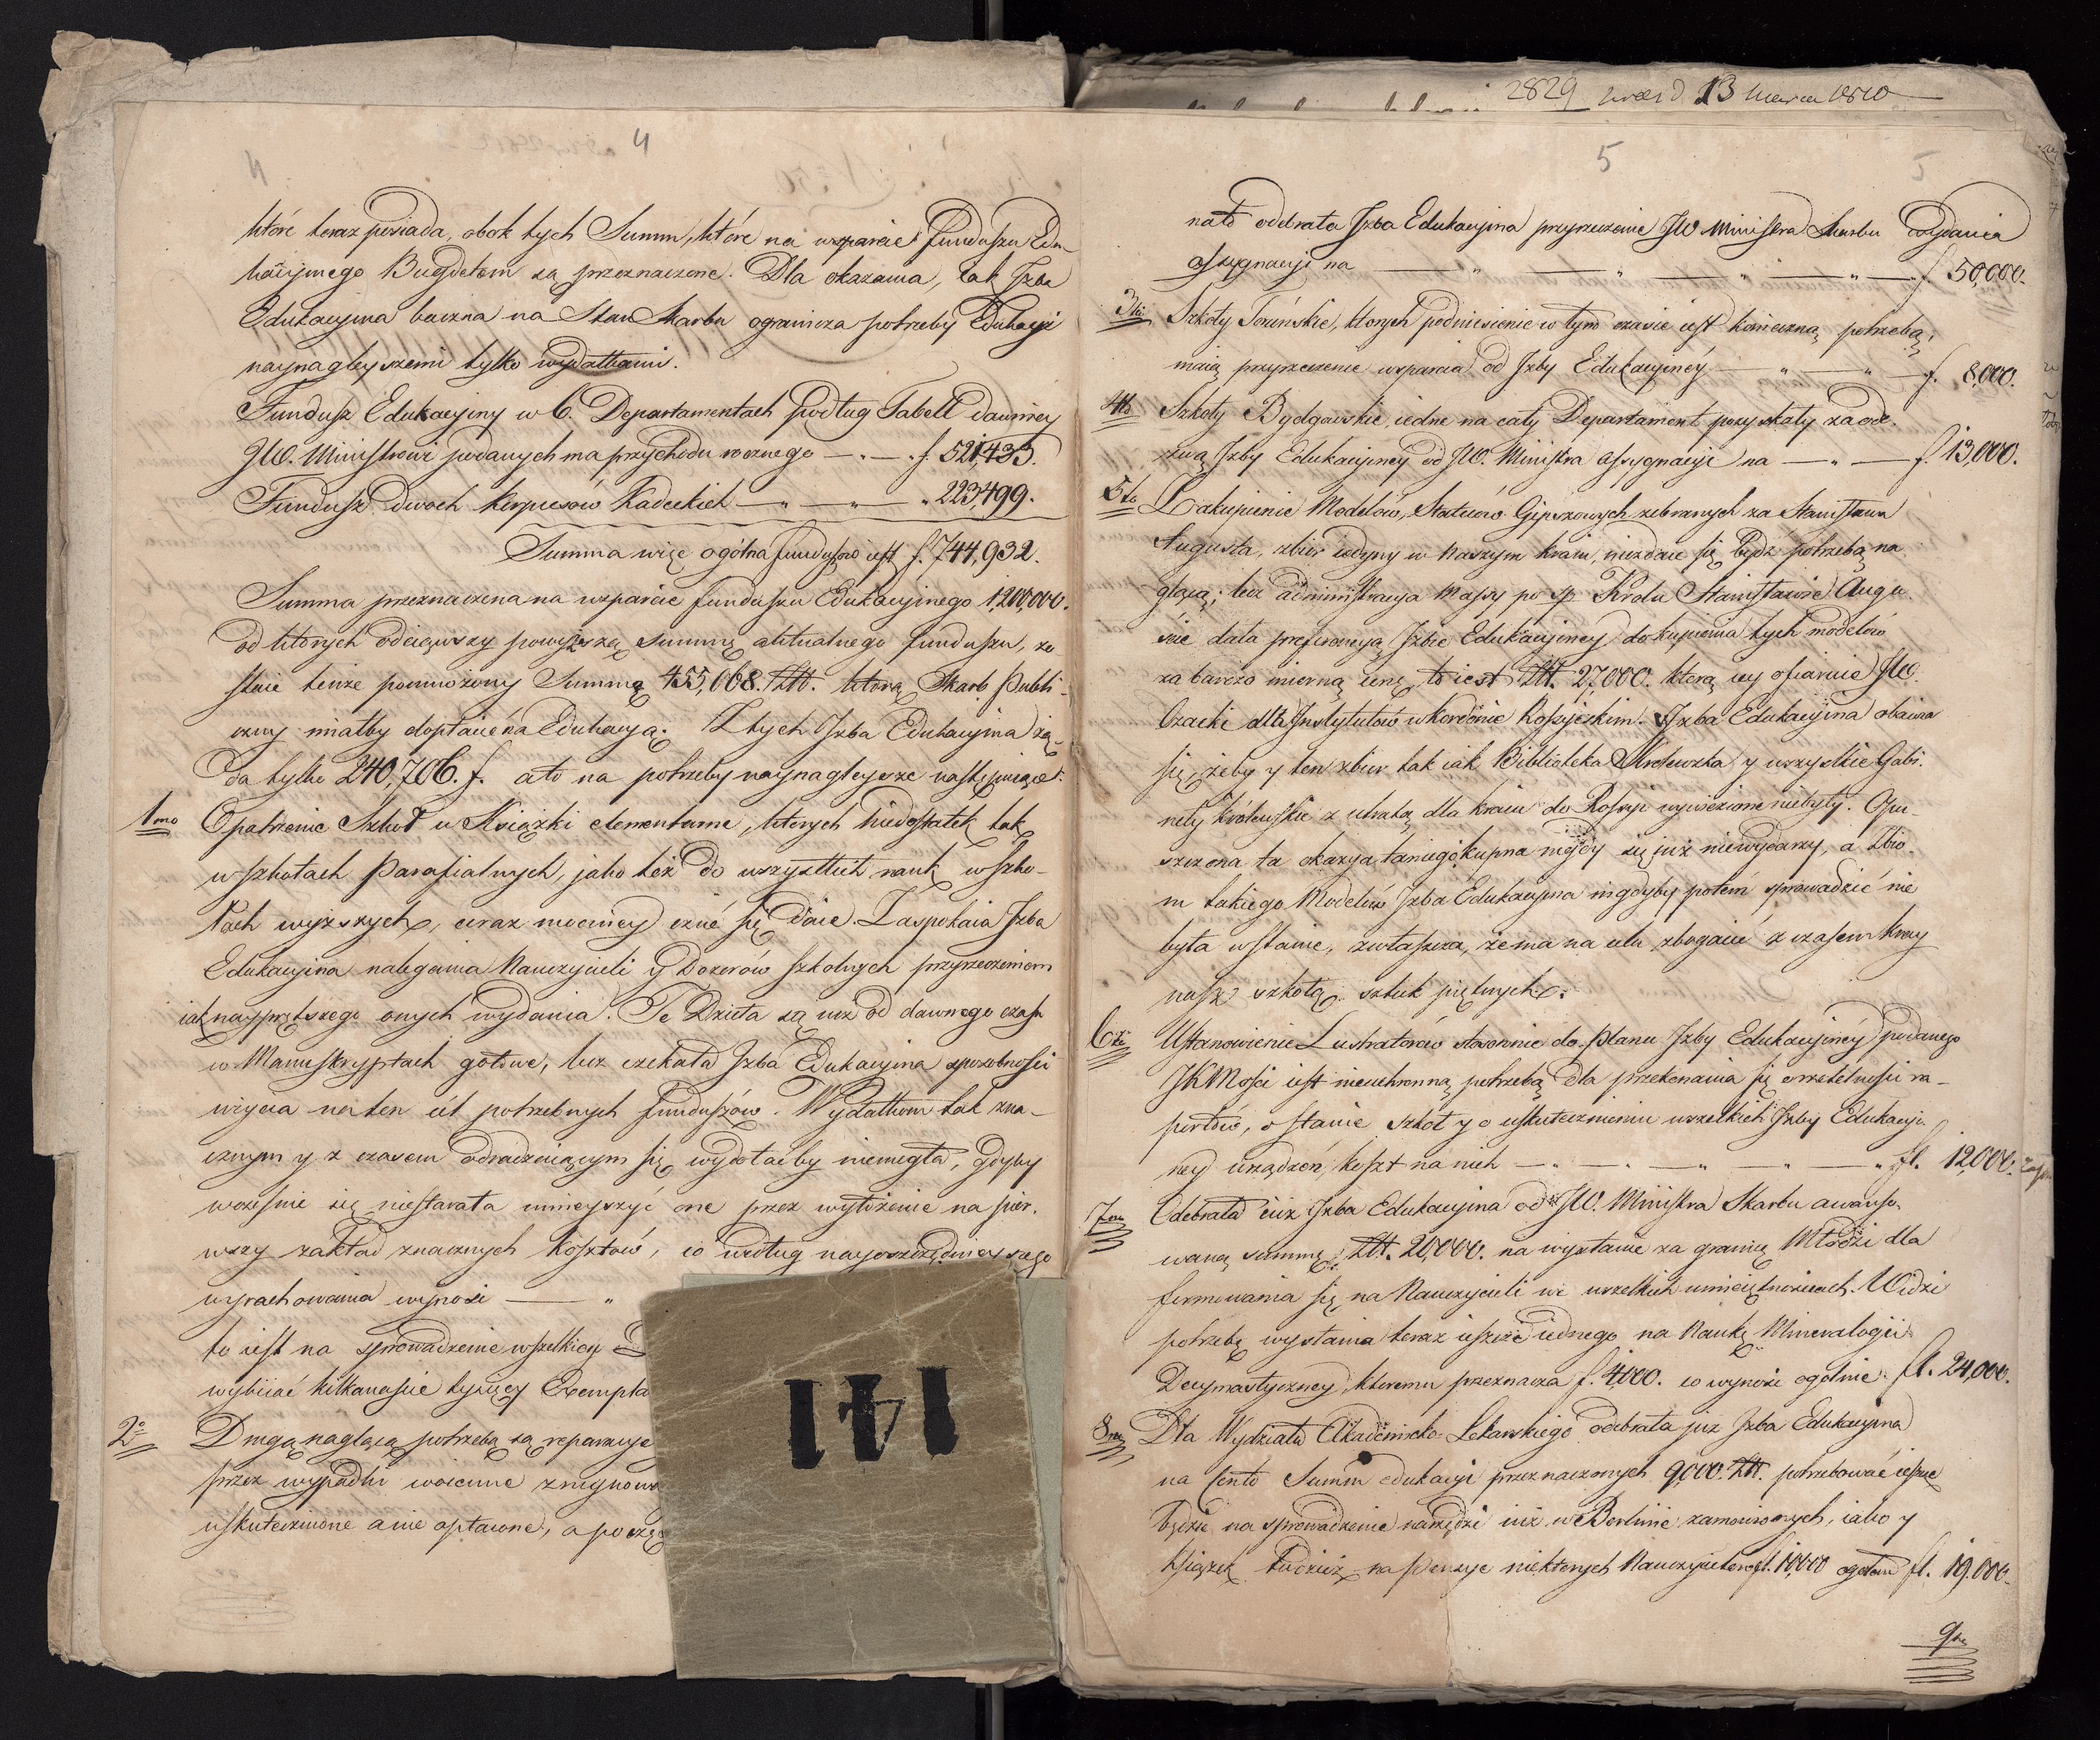 4
4
które teraz posiada, obok tych Summ, które na wsparcie funduszu Edu
kacyjnego Budgetem są przeznaczone. Dla okazania, iak Izba
Edukacyina baczna na Stan Skarbu ogranicza potrzeby Edukacyi
naynagleyszemi tylko wydatkami.
Fundusz Edukacyiny w 6. Departamentach podług Tabell dawniey
JW. Ministrowi podanych ma przychodu rocznego f. 521,433.
Fundusz dwoch Korpusów Kadeckich " 223,499.
Summa więc ogólna funduszów iest f. 744,932.
Summa przeznaczona na wsparcie funduszu Edukacyjnego 1,200,000.
od ktorych odciąwszy powyższą summę aktualnego funduszu, zo
staie tenże pomnożony Summą 455,068. Złł. którą Skarb Publi-
czny miałby dopłacić na Edukacyą. Z tych Izba Edukacyina żą-
da tylko 240,706. f. a to na potrzeby naynagleysze następuiące:
1mo Opatrzenie Szkół w Książki elementarne, których niedostatek tak
w szkołach Parafialnych, jako też do wszystkich nauk w szko-
łach wyższych, coraz mocniey czuć się daie. Zaspokaia Izba
Edukacyina nalegania Nauczycieli y Dozorów szkolnych przyrzeczeniem
iak nayprętszego onych wydania. Te Dzieła są iuż od dawnego czasu
w Manuskryptach gotowe, lecz czekała Izba Edukacyina sposobności
użycia na ten cel potrzebnych funduszów. Wydatkom tak zna-
cznym y z czasem odradzaiącym się wydołaćby niemogła, gdyby
wcześnie się niestarała umnieyszyć one przez wyłożenie na pier-
wszy zakład znacznych kosztów, co według nayoszczędnieyszego
wyrachowania wynosi "
to iest na sprowadzenie wszelkiey
wybiiać kilkanaście tysięcy Exempla
2o Drugą naglącą potrzebą są reparacye
przez wypadki woienne zruynowa
uskutecznione a nie opłacone, a począ
141
2829 13 Marca 1810
5
5
na to odebrała Izba Edukacyjna przyrzeczenie JW Ministra Skarbu wydania
assygnacyi na f. 50,000.
3tio Szkoły Toruńskie, ktorych podniesienie w tym czasie iest konieczną potrzebą,
maią przyrzeczenie wsparcia od Izby Edukacyiney f. 8,000.
4to Szkoły Bydgowskie iedne na cały Departament pozyskały za ode-
zwą Izby Edukacyiney od JW. Ministra assygnacyi na f. 13,000.
5to Zakupienie Modelów, Statuów Gipsowych zebranych za Stanisława
Augusta, zbiór iedyny w Naszym kraiu, niezdaie się bydź potrzebą na-
glącą; lecz administracya Massy po śp Królu Stanisławie Augu-
ście dała preferencyą Izbie Edukacyiney do kupienia tych modelów
za bardzo mierną cenę, to iest Złł. 27,000. którą iey ofiaruie JW.
Czacki dla Instytutów w kordonie Rossyiskim. Izba Edukacyina obawia
się, żeby y ten zbiór tak iak Biblioteka Królewska y wszystkie Gabi-
nety Królewskie z utratą dla kraiu do Rossyi wywiezione niebyły. Opu-
szczona ta okazya taniego kupna nigdy się już niewydarzy, a Zbio-
ru takiego Modelów Izba Edukacyina nigdyby potem sprowadzić nie
była wstanie, zwłaszcza, że ma na celu zbogacić z czasem kray
nasz szkołą sztuk pięknych.
6to Ustanowienie Lustratorów stosownie do Planu Izby Edukacyjnéy podanego
JKMości iest nieuchronną potrzebą dla przekonania się o rzetelności ra-
portów, o stanie szkół y o uskutecznieniu wszelkich Izby Edukacyi-
ney urządzeń, koszt na nich fl. 12,000.
7mo Odebrała iuż Izba Edukacyina od JW. Ministra Skarbu awanso-
waną summę Złł. 20,000. na wysłanie za granicę Młodzi dla
formowania się na Nauczycieli we wszelkich umieiętnościach. Widzi
potrzebę wysłania teraz ieszcze iednego na Naukę Mineralogii
Docymastyczney, ktoremu przeznacza f. 4,000. co wynosi ogolnie fl. 24,000.
8vo Dla Wydziału Akademicko-Lekarskiego odebrała już Izba Edukacyina
na Conto Summ edukacyi przeznaczonych 9,000. Złł. potrzebować ieszcze
będzie na sprowadzenie narzędzi iuż w Berlinie zamówionych, iako y
książek tudzież na pensye niektorych Nauczycielow fl. 10,000 ogołem fl. 19,000.
9no